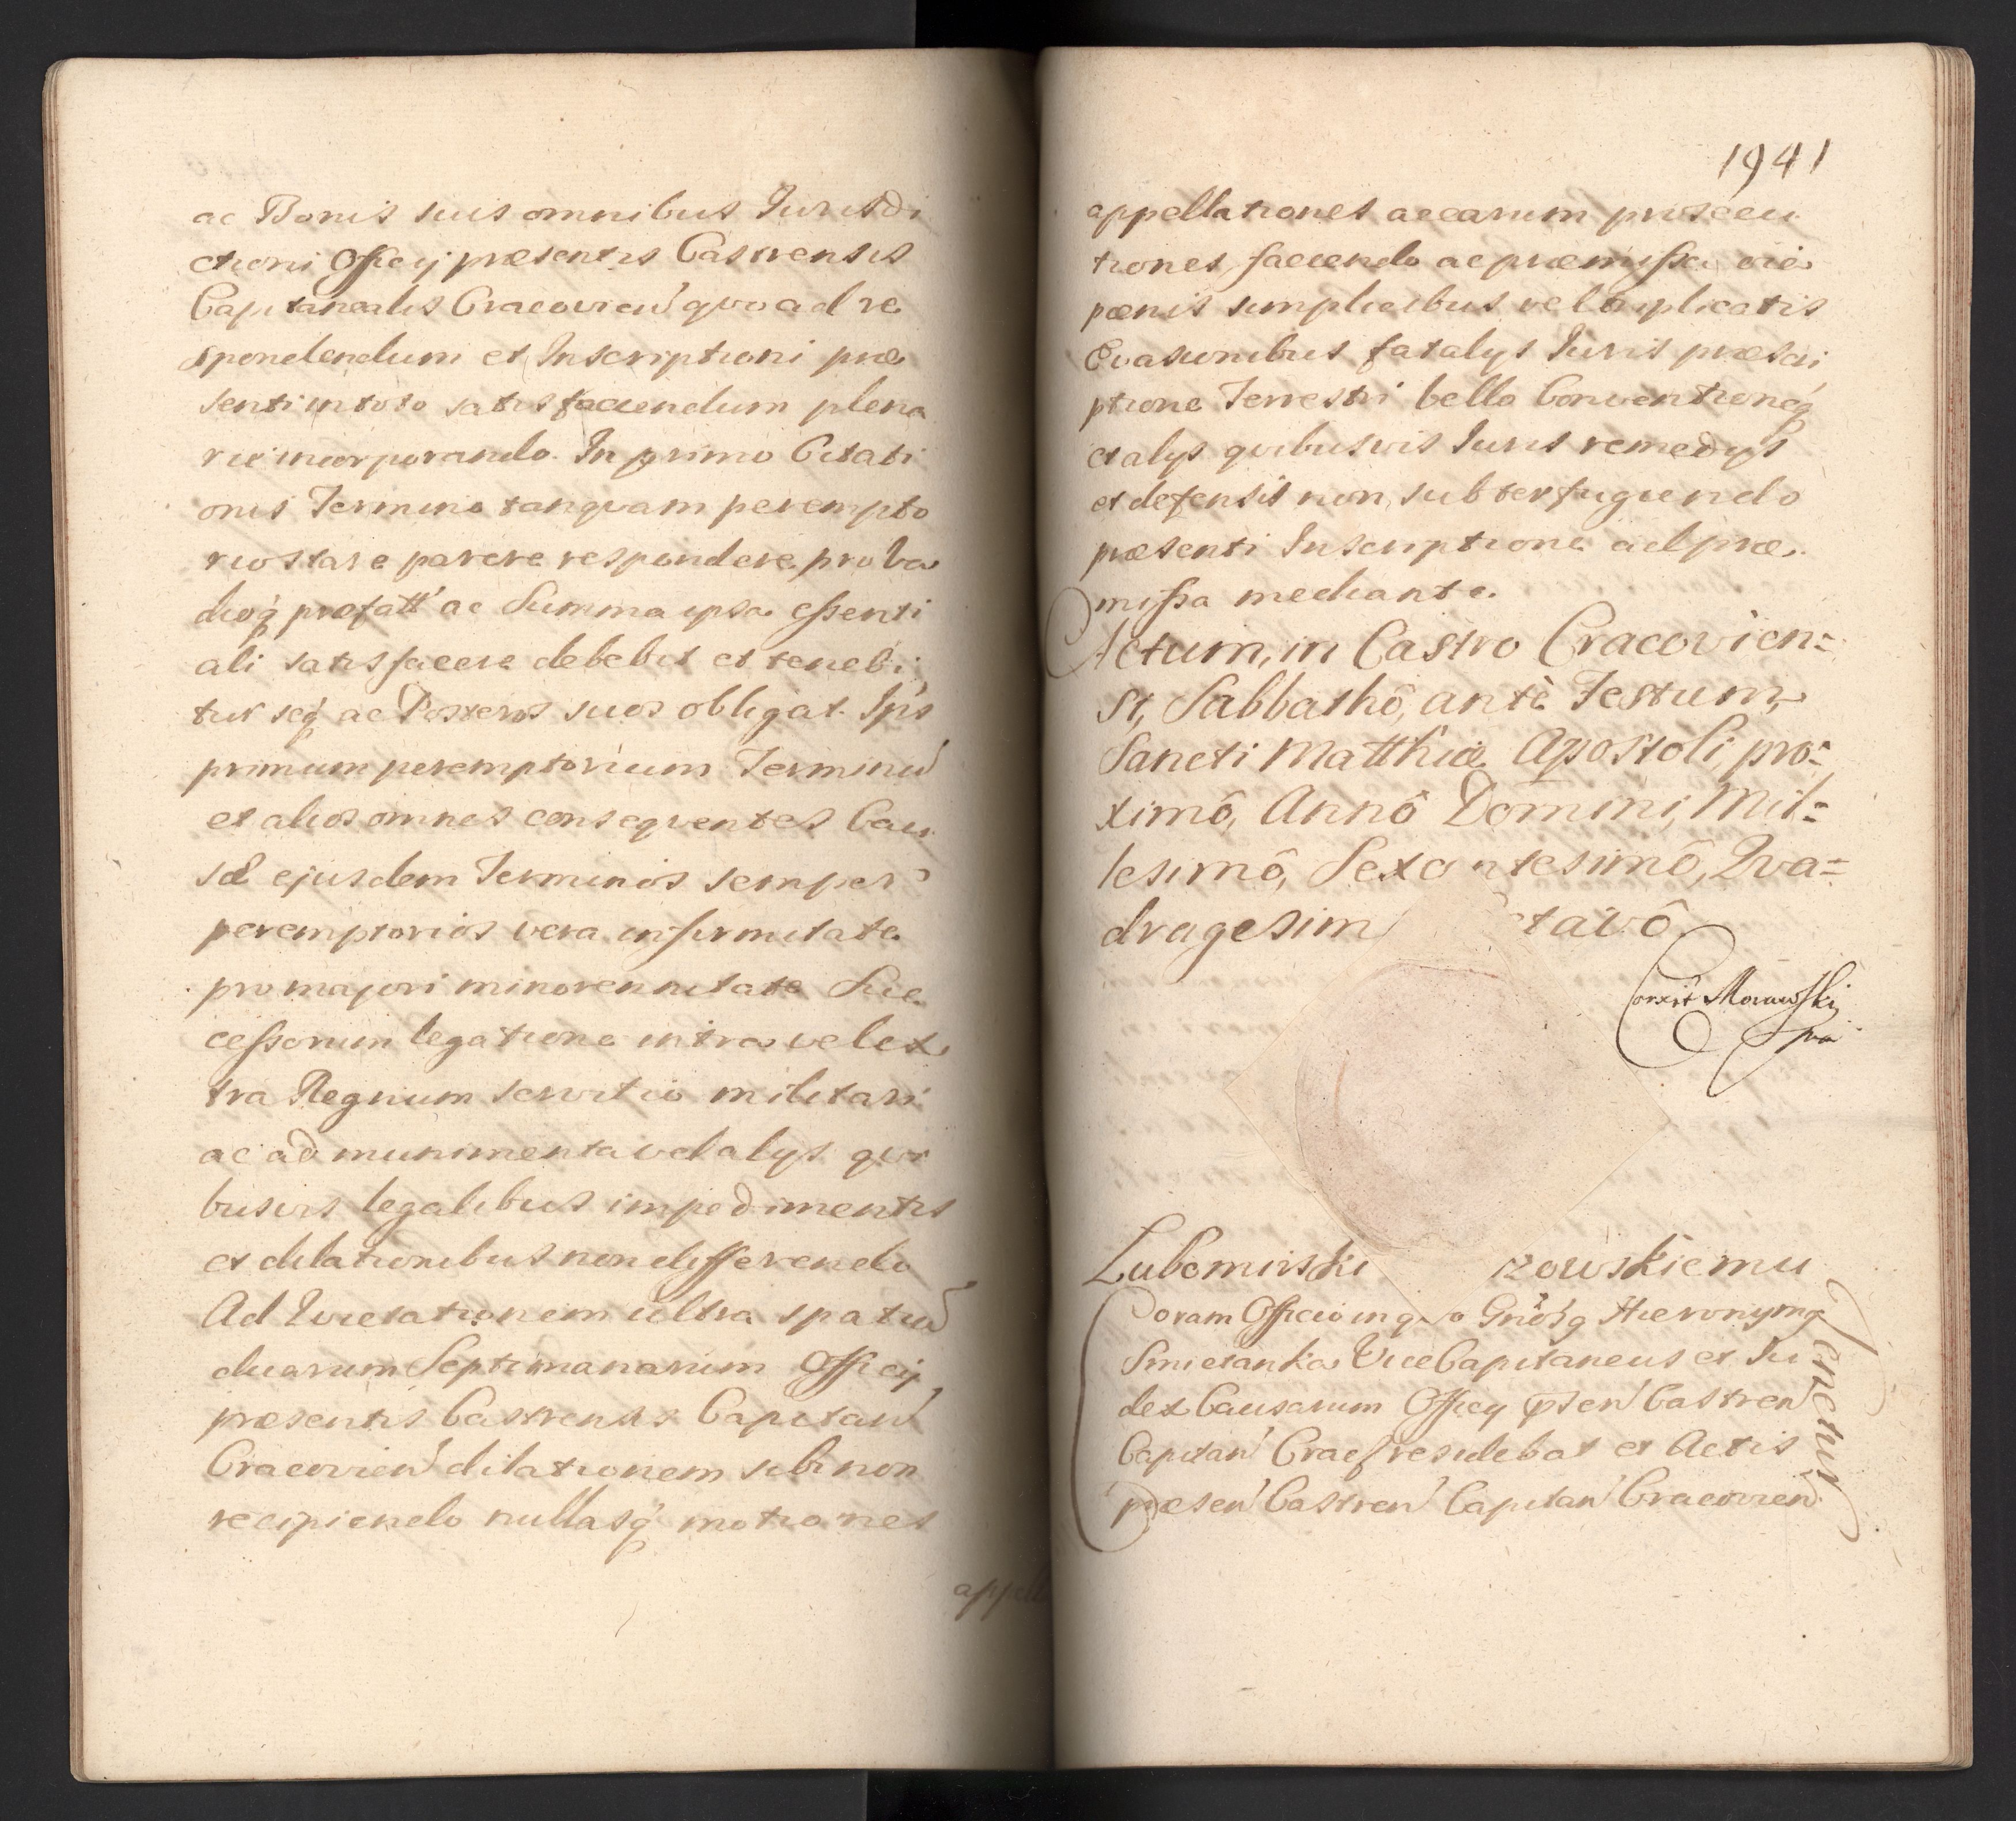 ac Bonis suis omnibus Jurisdi
ctioni Officij præsentis Castrensis
Capitanealis Cracovien̄ qvoad re
spondendum et Inscriptioni præ
senti in toto satisfaciendum plena
rie incorporando. In primo Citati
onis Termino tanqvam perempto
rio stare parere respondere
præfatt' ac Summa ipsa essenti
ali satisfacere debebit et tenebi
tur seq́ ac Posteros suos obligat. Ip̄s
primum peremptorium Terminū
et alios omnes conseqventes Cau
sæ ejusdem Terminos semper
peremptorios vera infirmitate
pro majori minorennitate Suc
cessorum legatione intra vel ex
tra Regnum servitio militari
ac ad munimenta vel alys qvi
busvis legalibus impedimentis
et dilationibus non differendo
Ad ultra spatiū
duarum Septimanarum Officij
præsentis Castrensis Capitan̄
Cracovien̄ dilationem sibi non
recipiendo nullasq́ motiones
appell
1941
appellationes ac earum prosecu
tiones faciendo ac præmissa
pœnis simplicibus vel
Evasionibus fatalys Juris præscri
ptione Terrestri bello Conventioneq́
et alys qvibusvis Juris remedys
et defensis non subterfugiendo
præsenti Inscriptione ad præ
missa mediante.
Actum, in Castro Cracovien=
si, Sabbathô, antè Festum,
Sancti Matthiæ Apostoli, pro=
ximô, Annô Domini, Mil=
lesimô, Sexc ntesimô, Qva=
dragesim ctavô
Corexit Morawski
mpa
Lubomirski zowskiemu
Coram Officio in qvo Gn̄osq́ Hieronymq
Smietanka ViceCapitaneus et Ju
dex Causarum Officy p̄sen̄ Castren̄
Capitan̄ Crac residebat et Actis
præsen̄ Castren̄ Capitan̄ Cracovien̄